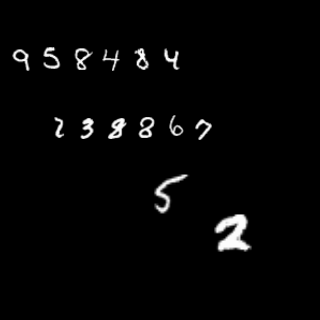 958484
238867
5
2